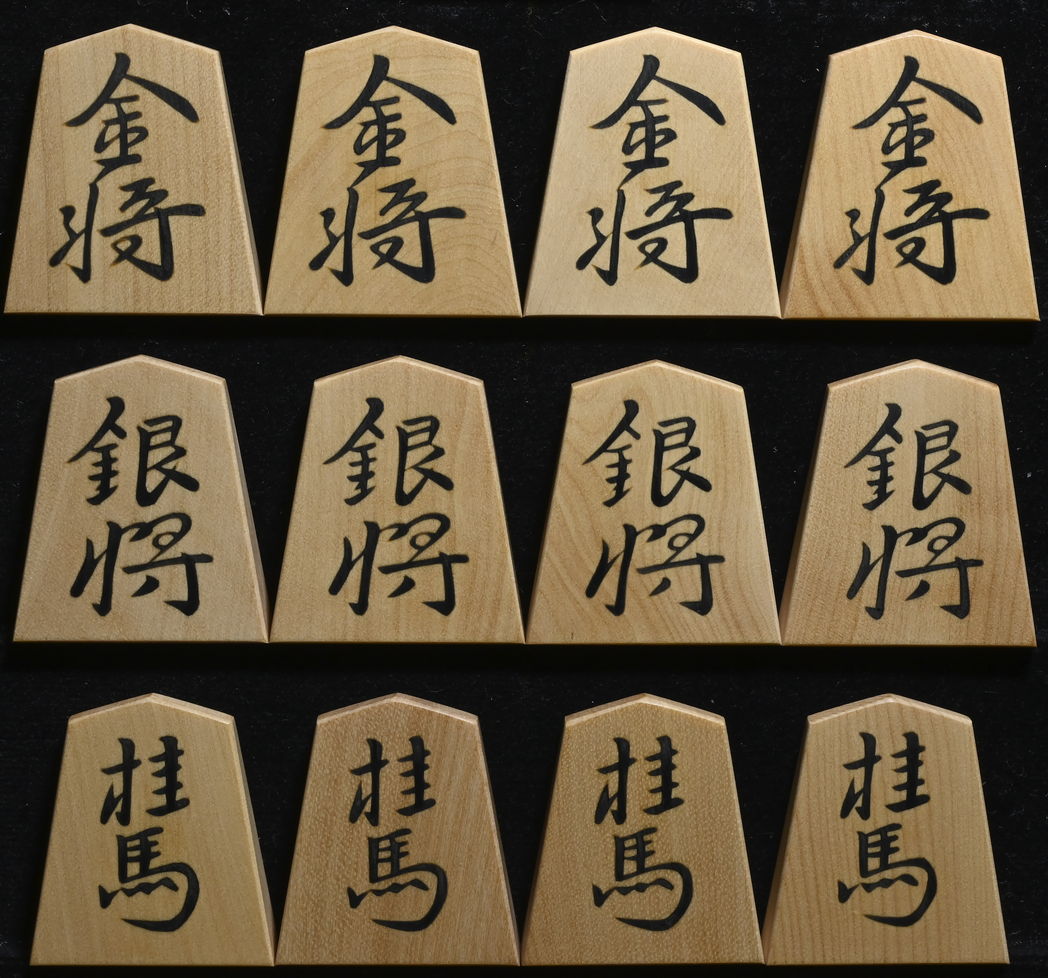 金将 金将 金将 金将
銀将 銀将 銀将 銀将
桂馬 桂馬 桂馬 桂馬